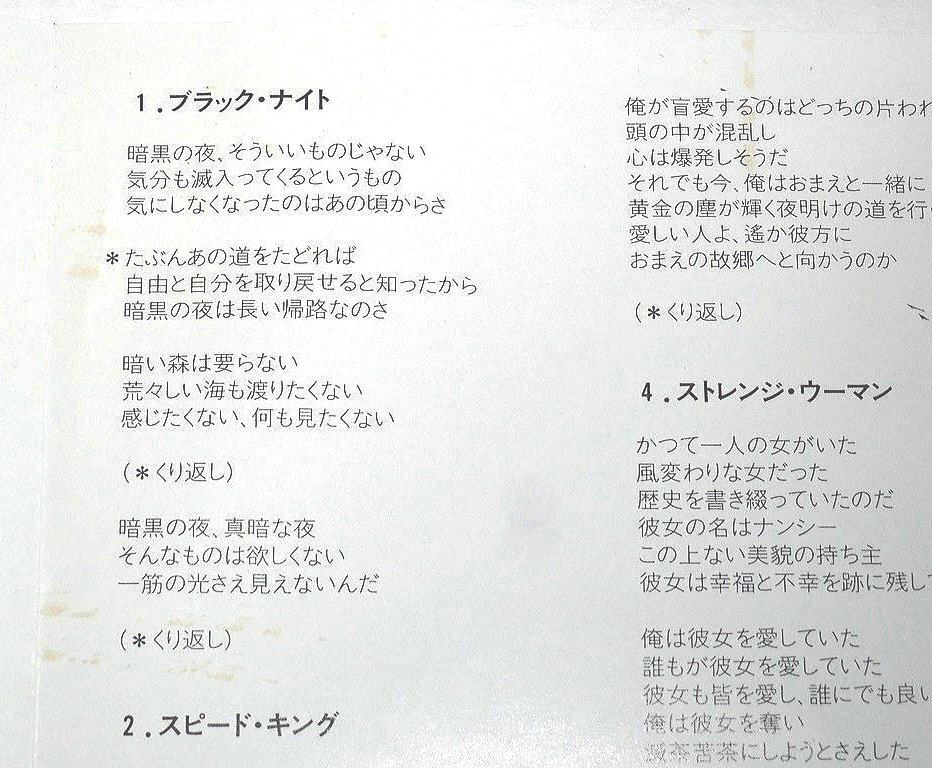 1.ブラック・ナイト
暗黒の夜、そういいものじゃない
気分も滅入ってくるというもの
気にしなくなったのはあの頃からさ
*たぶんあの道をたどれば
自由と自分を取り戻せると知ったから
暗黒の夜は長い帰路なのさ
暗い森は要らない
荒々しい海も渡りたくない
感じたくない、何も見たくない
(*くり返し)
暗黒の夜、真暗な夜
そんなものは欲しくない
一筋の光さえ見えないんだ
(*くり返し)
2.スピード・キング
俺が盲愛するのはどっちの片われ
頭の中が混乱し
心は爆発しそうだ
それでも今、俺はおまえと一緒に
黄金の塵が輝く夜明けの道を行
愛しい人よ、遙か彼方に
おまえの故郷へと向かうのか
(*くり返し)
4.ストレンジ・ウーマン
かつて一人の女がいた
風変わりな女だった
歴史を書き綴っていたのだ
彼女の名はナンシー
この上ない美貌の持ち主
彼女は幸福と不幸を跡に残し
俺は彼女を愛していた
誰もが彼女を愛していた
彼女も皆を愛し、誰にでも良い
俺は彼女を奪い
滅茶苦茶にしようとさえした